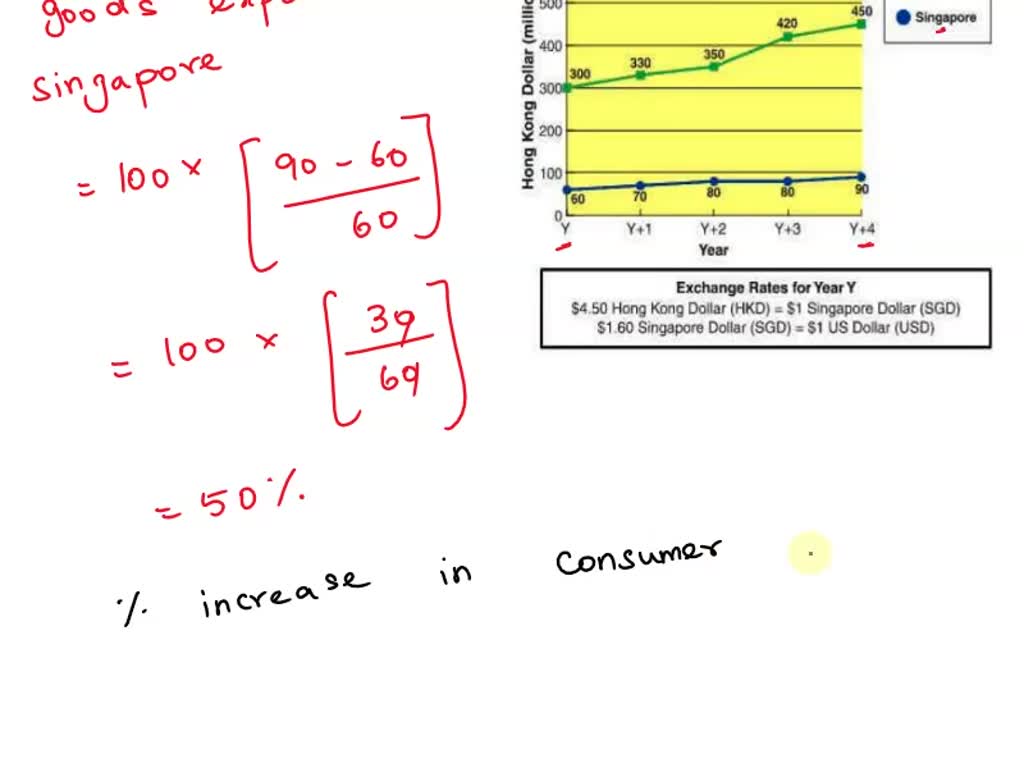 goods
singapore
= 100 × [ 90 - 60 / 60 ]
= 100 × [ 30 / 60 ]
= 50 %
% increase in consumer
Hong Kong Dollar
500
400
300
200
100
0
300 330 350 420 450
60 70 80 80 90
Y Y+1 Y+2 Y+3 Y+4
Year
Singapore
Exchange Rates for Year Y
$4.50 Hong Kong Dollar (HKD) = $1 Singapore Dollar (SGD)
$1.60 Singapore Dollar (SGD) = $1 US Dollar (USD)